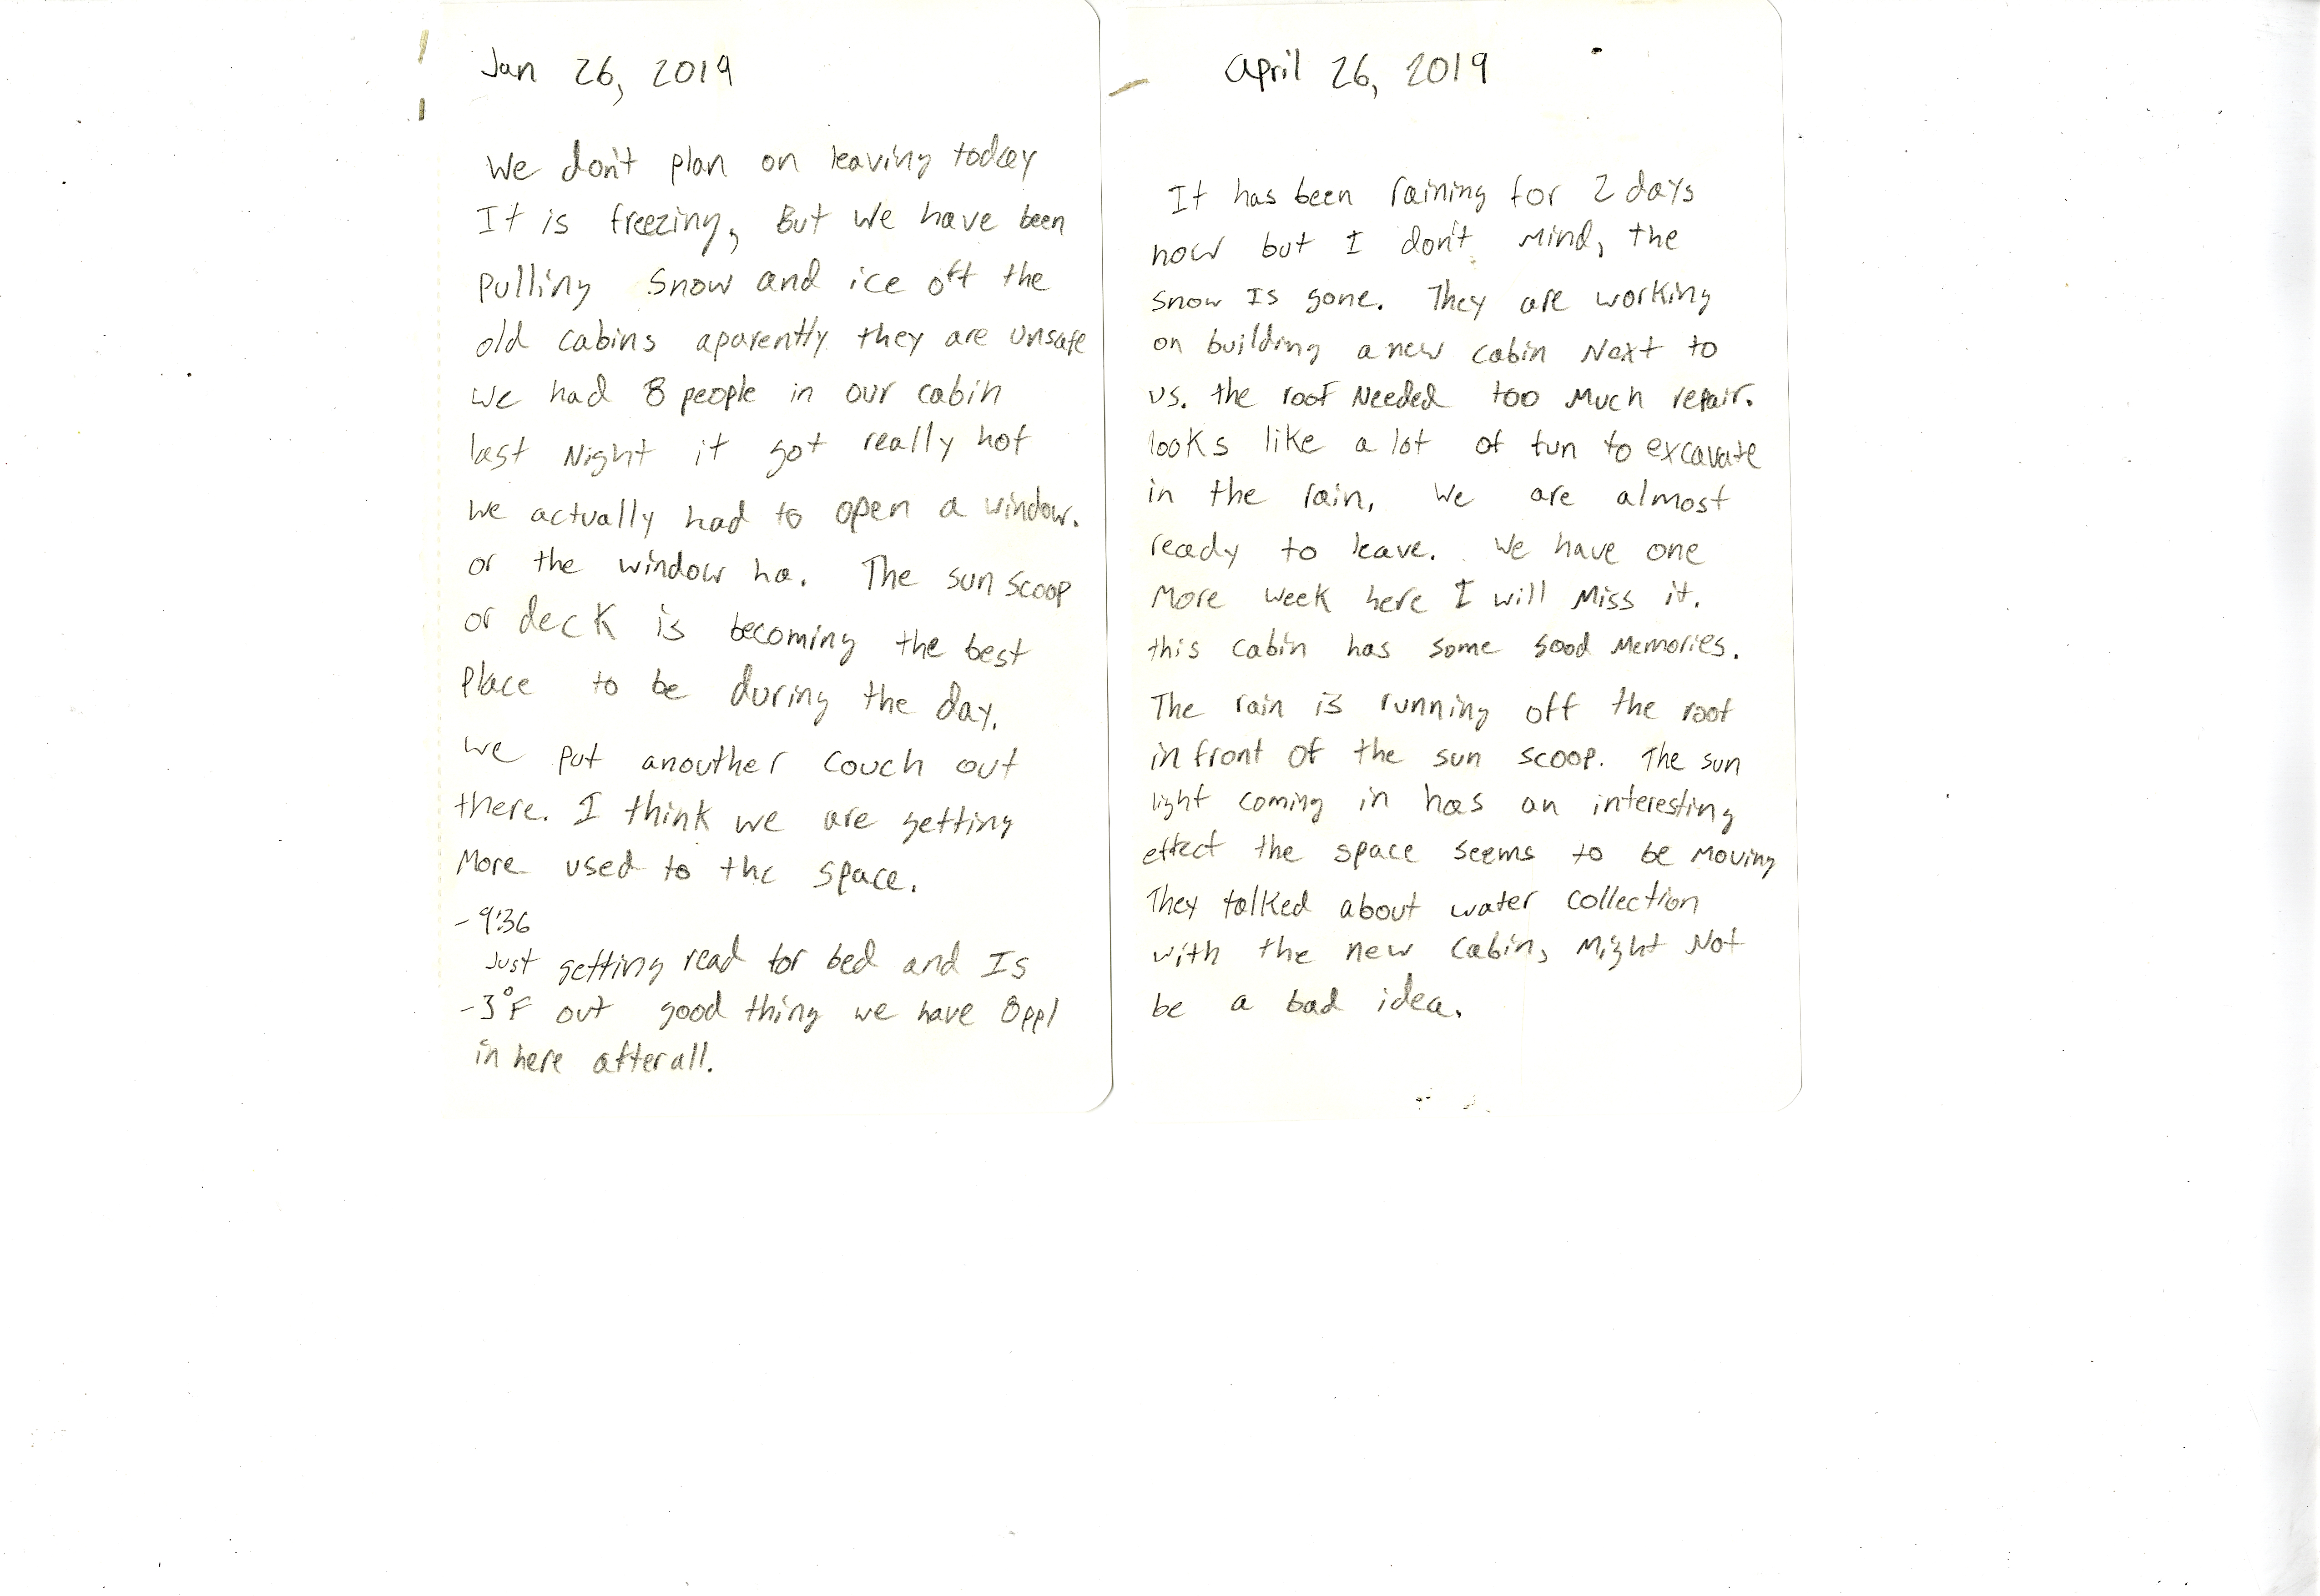 Jan 26, 2019
We don't plan on leaving today
It is freezing, But we have been
pulling snow and ice off the
old cabins aparently they are unsafe
we had 8 people in our cabin
last Night it got really hot
we actually had to open a window.
or the window ha. The sun scoop
or deck is becoming the best
place to be during the day.
we put anouther couch out
there. I think we are getting
More used to the space.
- 9:36
Just getting read for bed and Is
-3°F out good thing we have 8ppl
in here after all.
April 26, 2019
It has been raining for 2 days
now but I don't mind, the
snow Is gone. They are working
on building a new cabin Next to
us. the roof Needed too Much repair.
looks like a lot of fun to excavate
in the rain. We are almost
ready to leave. We have one
More week here I will Miss it.
this cabin has some good Memories.
The rain is running off the roof
in front of the sun scoop. The sun
light coming in has an interesting
effect the space seems to be Moving
They talked about water collection
with the new cabin, Might Not
be a bad idea.